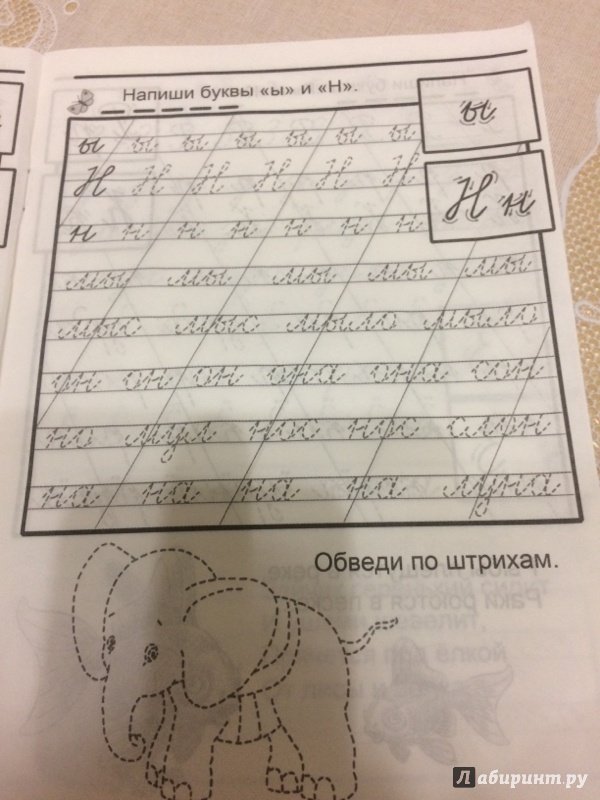 Напиши буквы «ы» и «Н».
ы ы ы ы ы ы ы
ы
Н Н Н Н Н Н
Н н
н н н н н н н
мы мы мы мы мы
мыс мыс мыло мыло
он он он она она сон
но мул нос нос слон
на на на на луна
Обведи по штрихам.
Раки роются в песке
Лабиринт.ру